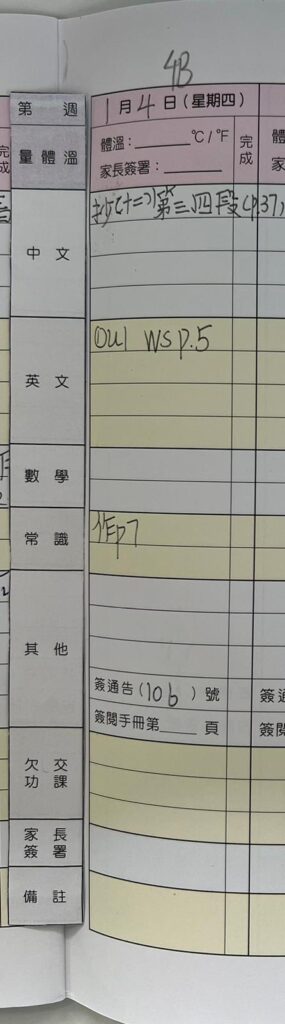 4B
第 週
1月4日(星期四)
量體溫
體溫：______℃/℉
家長簽署：______
完成
中文
抄(十二)第三四段(P.37)
英文
OU1 WS P.5
數學
常識
作P7
其他
簽通告(106)號
簽閱手冊第____頁
欠交功課
家長簽署
備註